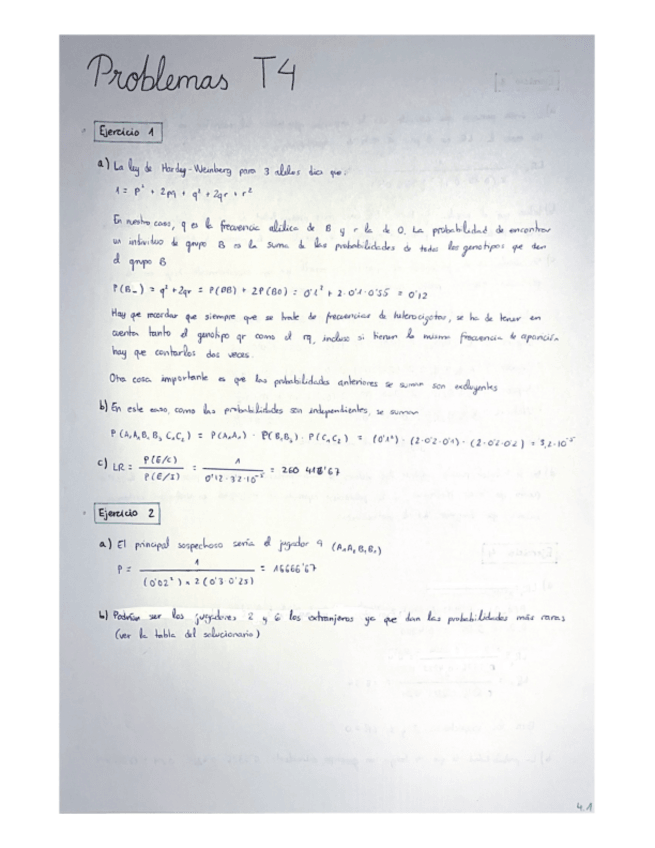 Problemas T4
Ejercicio 1
a) La ley de Hardy-Weinberg para 3 alelos dice que:
1 = p² + 2pq + q² + 2qr + r²
En nuestro caso, q es la frecuencia alélica de B y r la de O. La probabilidad de encontrar
un individuo de grupo B es la suma de las probabilidades de todos los genotipos que dan
el grupo B
P(B_) = q² + 2qr = P(BB) + 2P(BO) = 0'1² + 2·0'1·0'55 = 0'12
Hay que recordar que siempre que se trate de frecuencias de heterocigotos, se ha de tener en
cuenta tanto el genotipo qr como el rq, incluso si tienen la misma frecuencia de aparición
hay que contarlos dos veces.
Otra cosa importante es que las probabilidades anteriores se suman son excluyentes
b) En este caso, como las probabilidades son independientes, se suman
P(A₁A₁B₁B₂C₁C₂) = P(A₁A₁) · P(B₁B₂) · P(C₁C₂) = (0'1²) · (2·0'2·0'1) · (2·0'2·0'2) = 3,2·10⁻⁵
c) LR = P(E/C) / P(E/I) = 1 / 0'12·3'2·10⁻⁵ = 260 416'67
Ejercicio 2
a) El principal sospechoso sería el jugador 9 (A₁A₁B₁B₂)
P = 1 / (0'02²) × 2(0'3·0'25) = 16666'67
b) Podrían ser los jugadores 2 y 6 los extranjeros ya que dan las probabilidades más raras
(ver la tabla del solucionario)
4.1